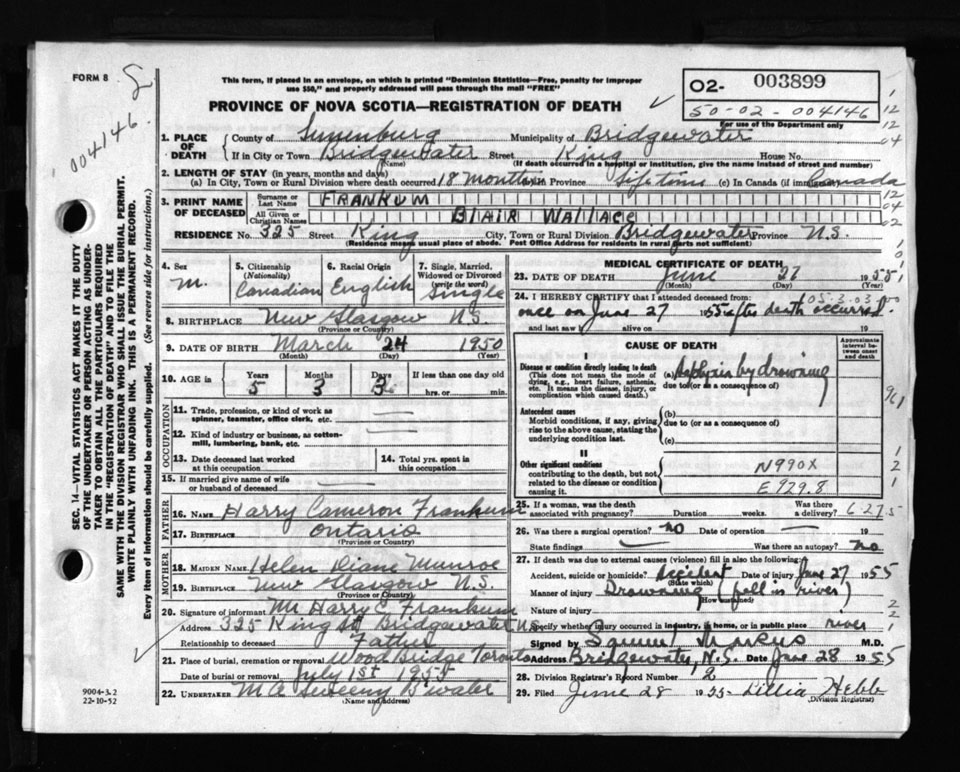 FORM 8
004146.
This form, if placed in an envelope, on which is printed "Dominion Statistics—Free, penalty for improper
use $50," and properly addressed will pass through the mail "FREE"
PROVINCE OF NOVA SCOTIA—REGISTRATION OF DEATH
O2- 003899
50-02-004146
For use of the Department only
SEC. 14—VITAL STATISTICS ACT MAKES IT THE DUTY
OF THE UNDERTAKER OR PERSON ACTING AS UNDER-
TAKER TO OBTAIN ALL THE PARTICULARS REQUIRED
IN THE "REGISTRATION OF DEATH" AND TO FILE THE
SAME WITH THE DIVISION REGISTRAR WHO SHALL ISSUE THE BURIAL PERMIT.
WRITE PLAINLY WITH UNFADING INK. THIS IS A PERMANENT RECORD.
Every item of information should be carefully supplied. (See reverse side for instructions.)
1. PLACE OF DEATH
County of Lunenburg Municipality of Bridgewater
If in City or Town Bridgewater Street King House No.
(Name) (If death occurred in a hospital or institution, give the name instead of street and number)
2. LENGTH OF STAY (in years, months and days)
(a) In City, Town or Rural Division where death occurred 18 months Province Lifetime (c) In Canada (if immigrant) Canada
3. PRINT NAME OF DECEASED
Surname or Last Name FRANKUM
All Given or Christian Names BLAIR WALLACE
RESIDENCE No. 325 Street King City, Town or Rural Division Bridgewater Province N.S.
(Residence means usual place of abode. Post Office Address for residents in rural parts not sufficient)
4. Sex M.
5. Citizenship (Nationality) Canadian
6. Racial Origin English
7. Single, Married, Widowed or Divorced (write the word) Single
8. BIRTHPLACE New Glasgow N.S.
(Province or Country)
9. DATE OF BIRTH March 24 1950
(Month) (Day) (Year)
10. AGE in Years 5 Months 3 Days 3 If less than one day old hrs. or min.
OCCUPATION
11. Trade, profession, or kind of work as spinner, teamster, office clerk, etc.
12. Kind of industry or business, as cotton-mill, lumbering, bank, etc.
13. Date deceased last worked at this occupation
14. Total yrs. spent in this occupation
15. If married give name of wife or husband of deceased
FATHER
16. Name Harry Cameron Frankum
17. Birthplace Ontario
(Province or Country)
MOTHER
18. MAIDEN NAME Helen Diane Munroe
19. BIRTHPLACE New Glasgow N.S.
(Province or Country)
20. Signature of informant Mr Harry C. Frankum
Address 325 King St Bridgewater N.S.
Relationship to deceased Father
21. Place of burial, cremation or removal Wood Bridge Toronto
Date of burial or removal July 1st 1955
22. UNDERTAKER M A Sweeny B'water
(Name and address)
9004-3.2
22-10-52
MEDICAL CERTIFICATE OF DEATH
23. DATE OF DEATH June 27 1955
(Month) (Day) (Year)
24. I HEREBY CERTIFY that I attended deceased from:
05-3.03
once on June 27 1955 after death occurred.
and last saw h alive on 19
CAUSE OF DEATH
Approximate interval between onset and death
Disease or condition directly leading to death
(This does not mean the mode of dying, e.g., heart failure, asthenia, etc. It means the disease, injury, or complication which caused death.)
(a) Asphyxia by drowning
due to (or as a consequence of)
Antecedent causes
Morbid conditions, if any, giving rise to the above cause, stating the underlying condition last.
(b)
due to (or as a consequence of)
(c)
II
Other significant conditions
contributing to the death, but not related to the disease or condition causing it.
N990X
E929.8
25. If a woman, was the death associated with pregnancy? Duration weeks. Was there a delivery?
6 27 5
26. Was there a surgical operation? no Date of operation
State findings Was there an autopsy? no
27. If death was due to external causes (violence) fill in also the following:
Accident, suicide or homicide? Accident Date of injury June 27 1955
(State which)
Manner of injury Drowning (fell in river)
(How sustained)
Nature of injury
Specify whether injury occurred in industry, in home, or in public place river
Signed by Samuel Markus M.D.
Address Bridgewater, N.S. Date June 28 1955
28. Division Registrar's Record Number 2
29. Filed June 28 1955 Lillia Hebb
(Division Registrar)